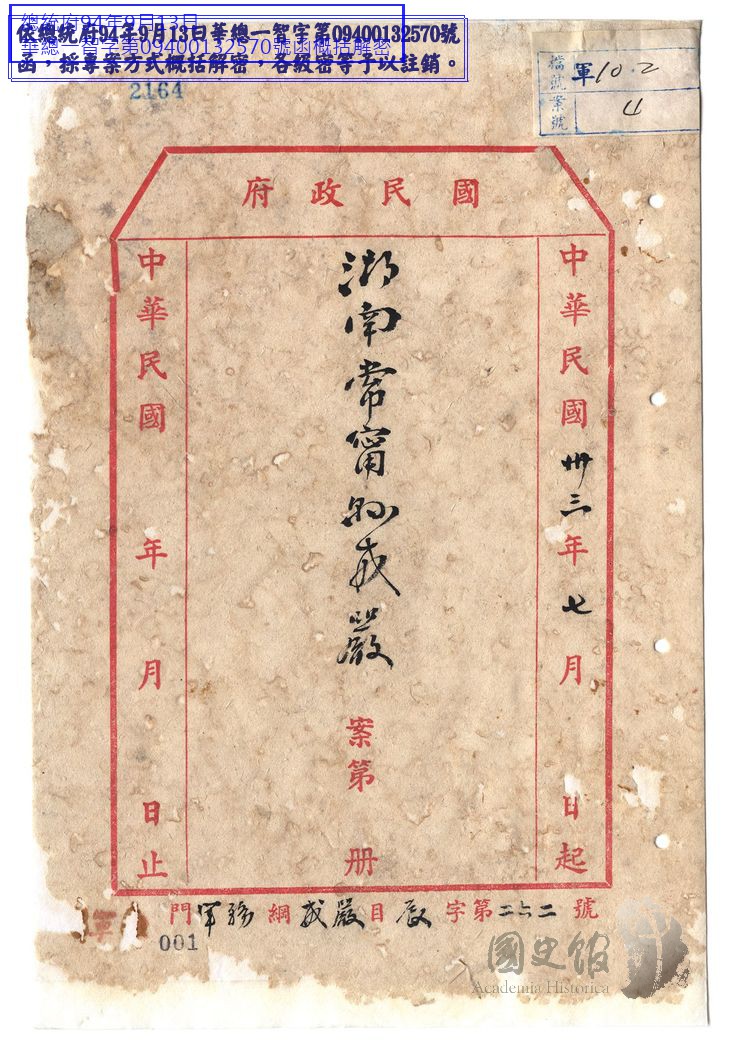 總統府94年9月13日
華總一智字第09400132570號函概括解密
依總統府94年9月13日華總一智字第09400132570號
函，採專案方式概括解密，各級密等予以註銷。
2164
檔號 軍10.2
案號 4
國民政府
中華民國卅三年七月 日起
湖南常甯縣戒嚴案第 册
中華民國 年 月 日止
門軍務綱戒嚴目 字第二七二號
軍
001
國史館
Academia Historica